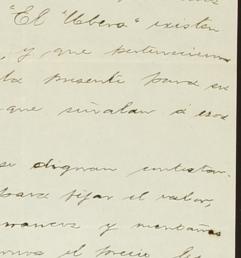 "El Ubero" existen
, y que pertenecieron
la presente para su
que señalan á esos
se dignan contestar
para fijar el valor
y montañas
el precio